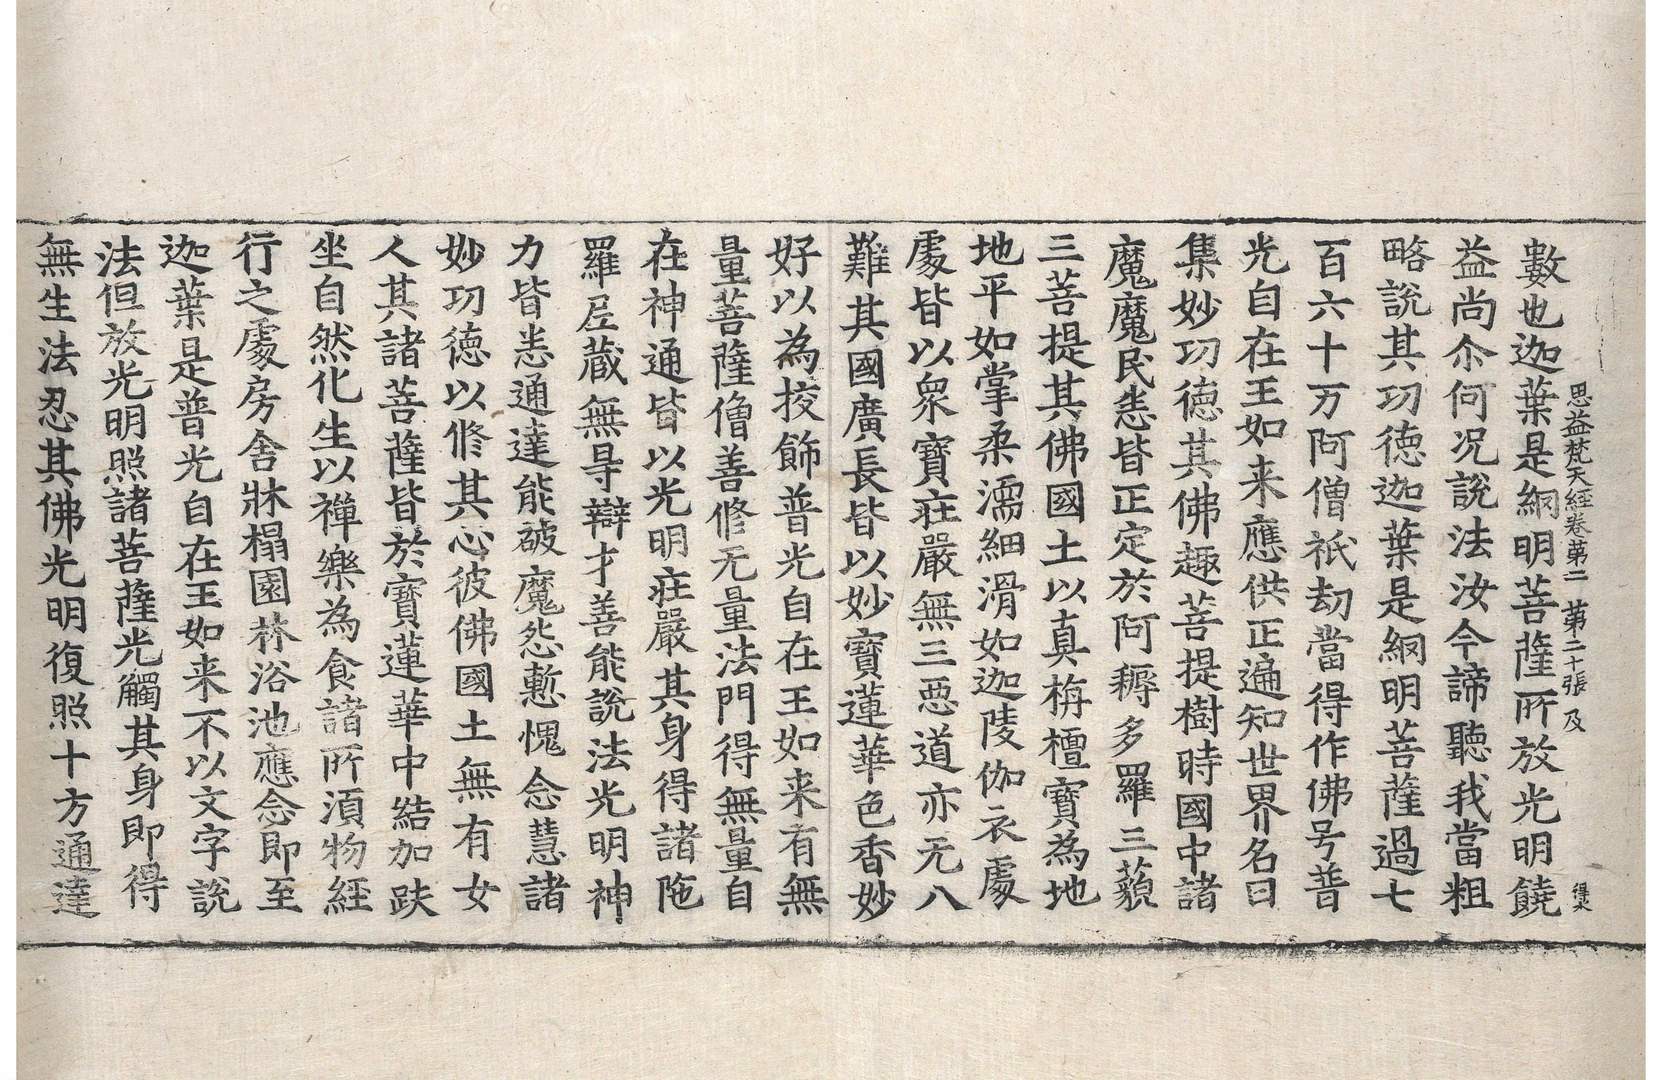 思益梵天經卷第二　第二十張　及
得集
數也迦葉是網明菩薩所放光明饒
益尚尒何况說法汝今諦聽我當粗
略說其功德迦葉是網明菩薩過七
百六十万阿僧祇劫當得作佛号普
光自在王如来應供正遍知世界名曰
集妙功德其佛趣菩提樹時國中諸
魔魔民悉皆正定於阿耨多羅三藐
三菩提其佛國土以真栴檀寶為地
地平如掌柔濡細滑如迦陵伽衣處
處皆以衆寶莊嚴無三惡道亦无八
難其國廣長皆以妙寶蓮華色香妙
好以為挍飾普光自在王如来有無
量菩薩僧善修无量法門得無量自
在神通皆以光明莊嚴其身得諸陁
羅尼藏無㝵辯才善能說法光明神
力皆悉通達能破魔怨慙愧念慧諸
妙功德以修其心彼佛國土無有女
人其諸菩薩皆於寶蓮華中結加趺
坐自然化生以禪樂為食諸所湏物經
行之處房舍牀榻園林浴池應念即至
迦葉是普光自在王如来不以文字說
法但放光明照諸菩薩光觸其身即得
無生法忍其佛光明復照十方通達